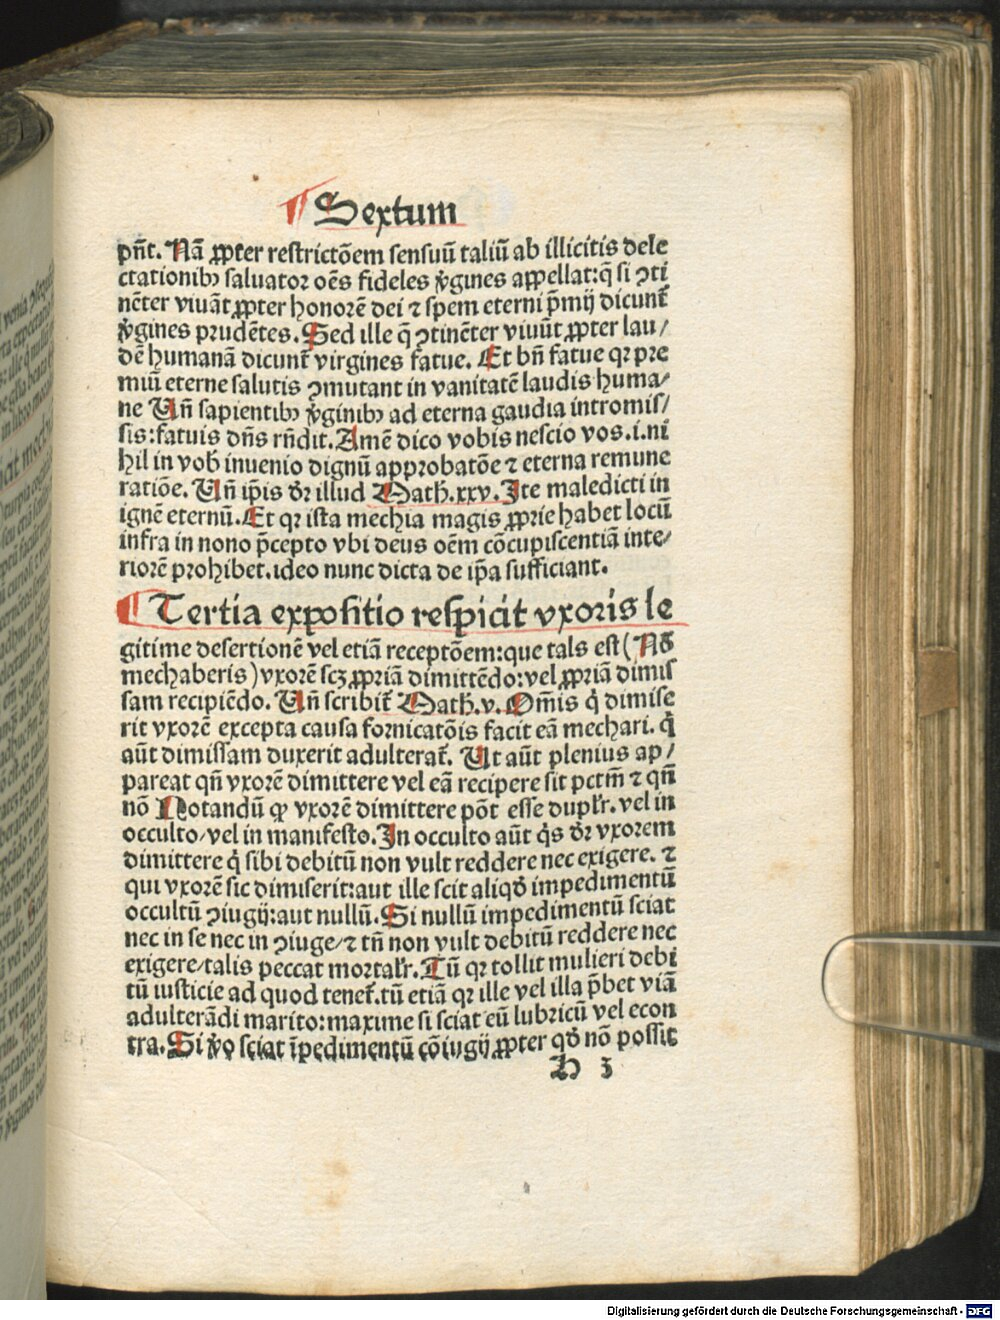 ¶ Sextum
pn̄t. Nā ꝓpter restrictōem sensuū taliū ab illicitis dele
ctationibꝰ saluator oēs fideles ꝟgines appellat:q̄ si ꝯti
nēter viuāt ꝓpter honorē dei ⁊ spem eterni p̄mij dicunt̄
ꝟgines prudētes. Sed ille q̄ ꝯtinēter viuūt ꝓpter lau/
dē humanā dicunt̄ virgines fatue. Et bn̄ fatue qꝛ pre
miū eterne salutis ꝯmutant in vanitatē laudis huma/
ne Un̄ sapientibꝰ ꝟginibꝰ ad eterna gaudia intromis/
sis:fatuis dn̄s rn̄dit. Amē dico vobis nescio vos.i.ni
hil in vob̄ inuenio dignū approbatōe ⁊ eterna remune
ratiōe. Un̄ ip̄is dr̄ illud Math.xxv. Ite maledicti in
ignē eternū. Et qꝛ ista mechia magis ꝓprie habet locū
infra in nono p̄cepto vbi deus oēm cōcupiscentiā inte/
riorē prohibet.ideo nunc dicta de ip̄a sufficiant.
¶ Tertia expositio respicit vxoris le
gitime desertionē vel etiā receptōem:que tal̄s est (Nō
mechaberis) vxorē scꝫ ꝓpriā dimittēdo:vel ꝓpriā dimis
sam recipiēdo. Un̄ scribit̄ Math.v. Om̄is q̄ dimise
rit vxorē excepta causa fornicatōis facit eā mechari. q̄
aūt dimissam duxerit adulterat̄. Ut aūt plenius ap/
pareat qn̄ vxorē dimittere vel eā recipere sit pctm̄ ⁊ qn̄
nō Notandū ꝙ vxorē dimittere pōt esse duplr̄. vel in
occulto/vel in manifesto. In occulto aūt q̄s dr̄ vxorem
dimittere q̄ sibi debitū non vult reddere nec exigere. ⁊
qui vxorē sic dimiserit:aut ille scit aliqd̄ impedimentū
occultū ꝯiugij:aut nullū. Si nullū impedimentū sciat
nec in se nec in ꝯiuge/⁊ tn̄ non vult debitū reddere nec
exigere/talis peccat mortalr̄. Tū qꝛ tollit mulieri debi
tū iusticie ad quod tenet̄.tū etiā qꝛ ille vel illa p̄bet viā
adulterādi marito:maxime si sciat eū lubricū vel econ
tra. Si ꝟo sciat īpedimentū cōiugij ꝓpter qd̄ nō possit
H 3
Digitalisierung gefördert durch die Deutsche Forschungsgemeinschaft - DFG